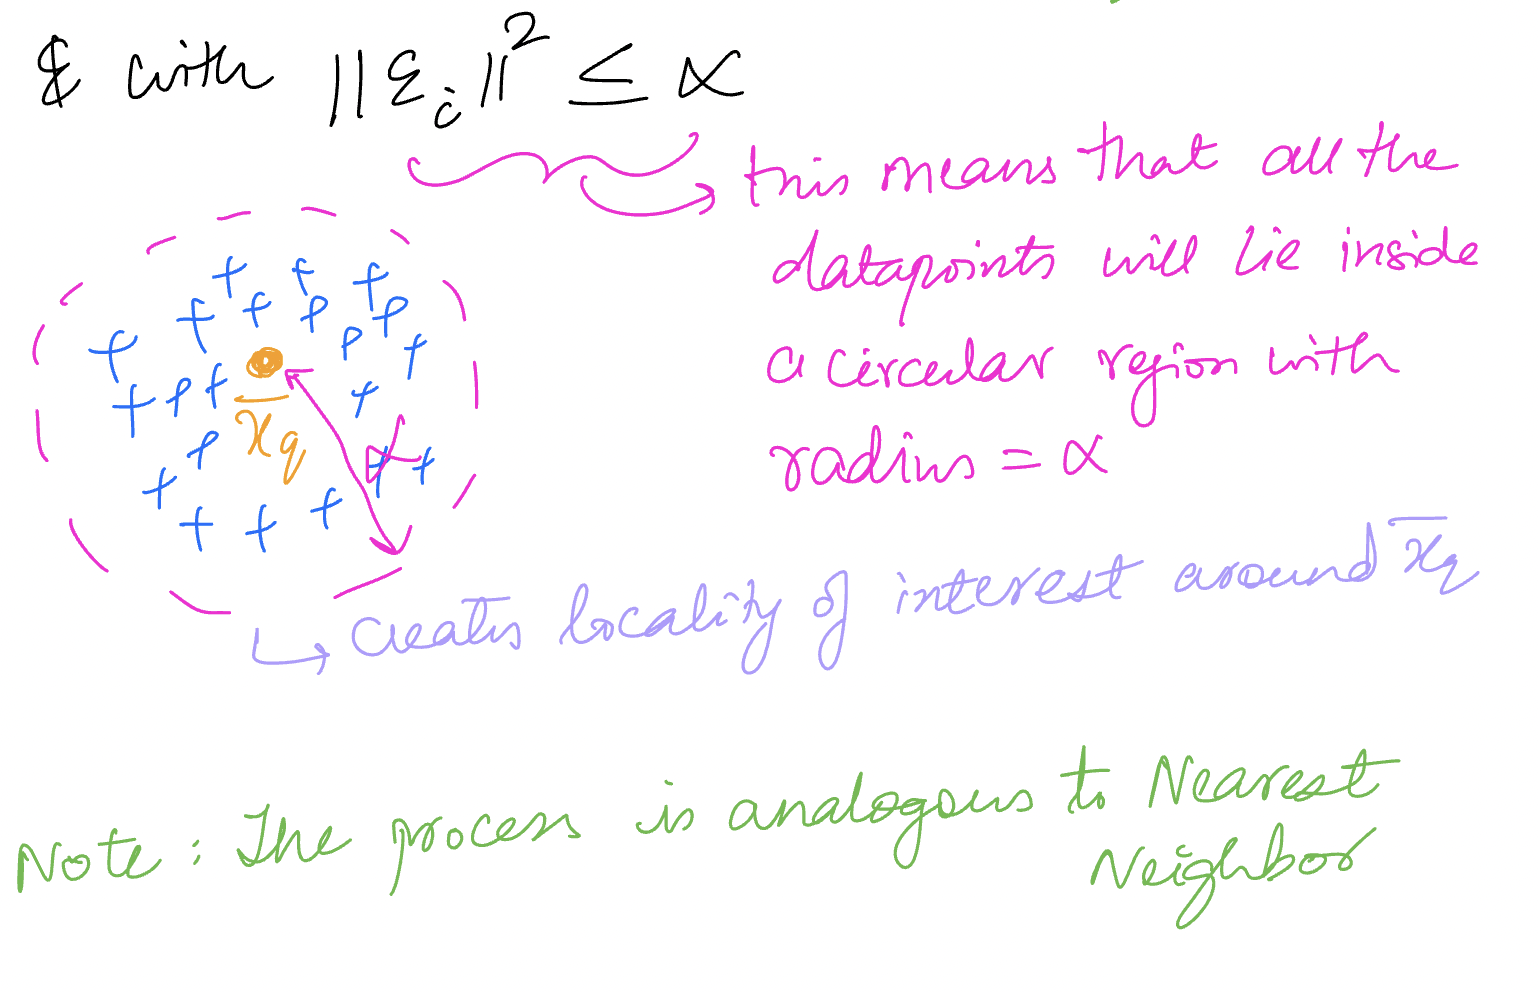 & with ||ε_i||² ≤ α
this means that all the
datapoints will lie inside
a circular region with
radius = α
x̄_q
α
↳ creates locality of interest around x̄_q
Note : The process is analogous to Nearest
Neighbor